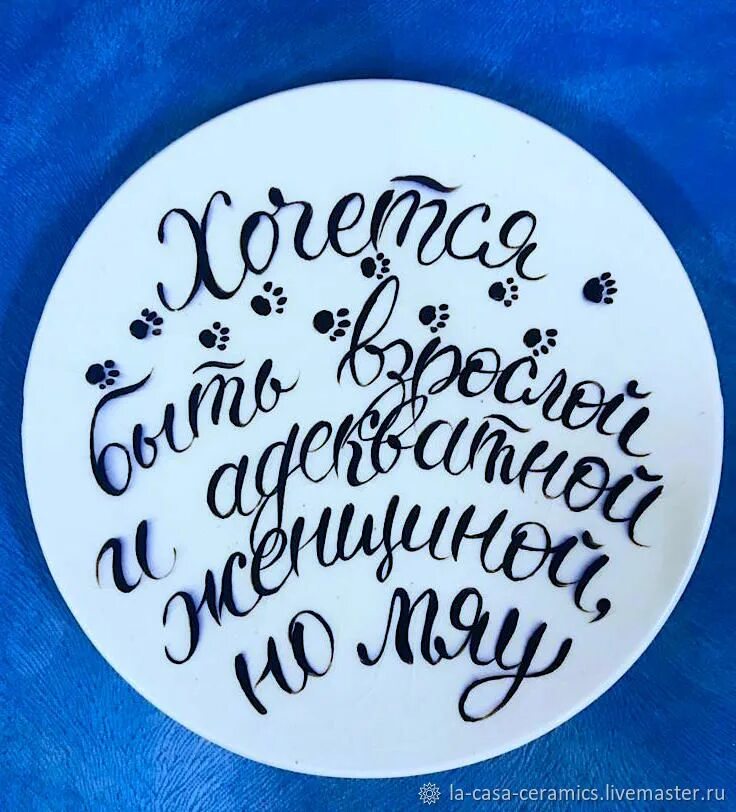 Хочется
быть взрослой
и адекватной
женщиной,
но мяу
la-casa-ceramics.livemaster.ru